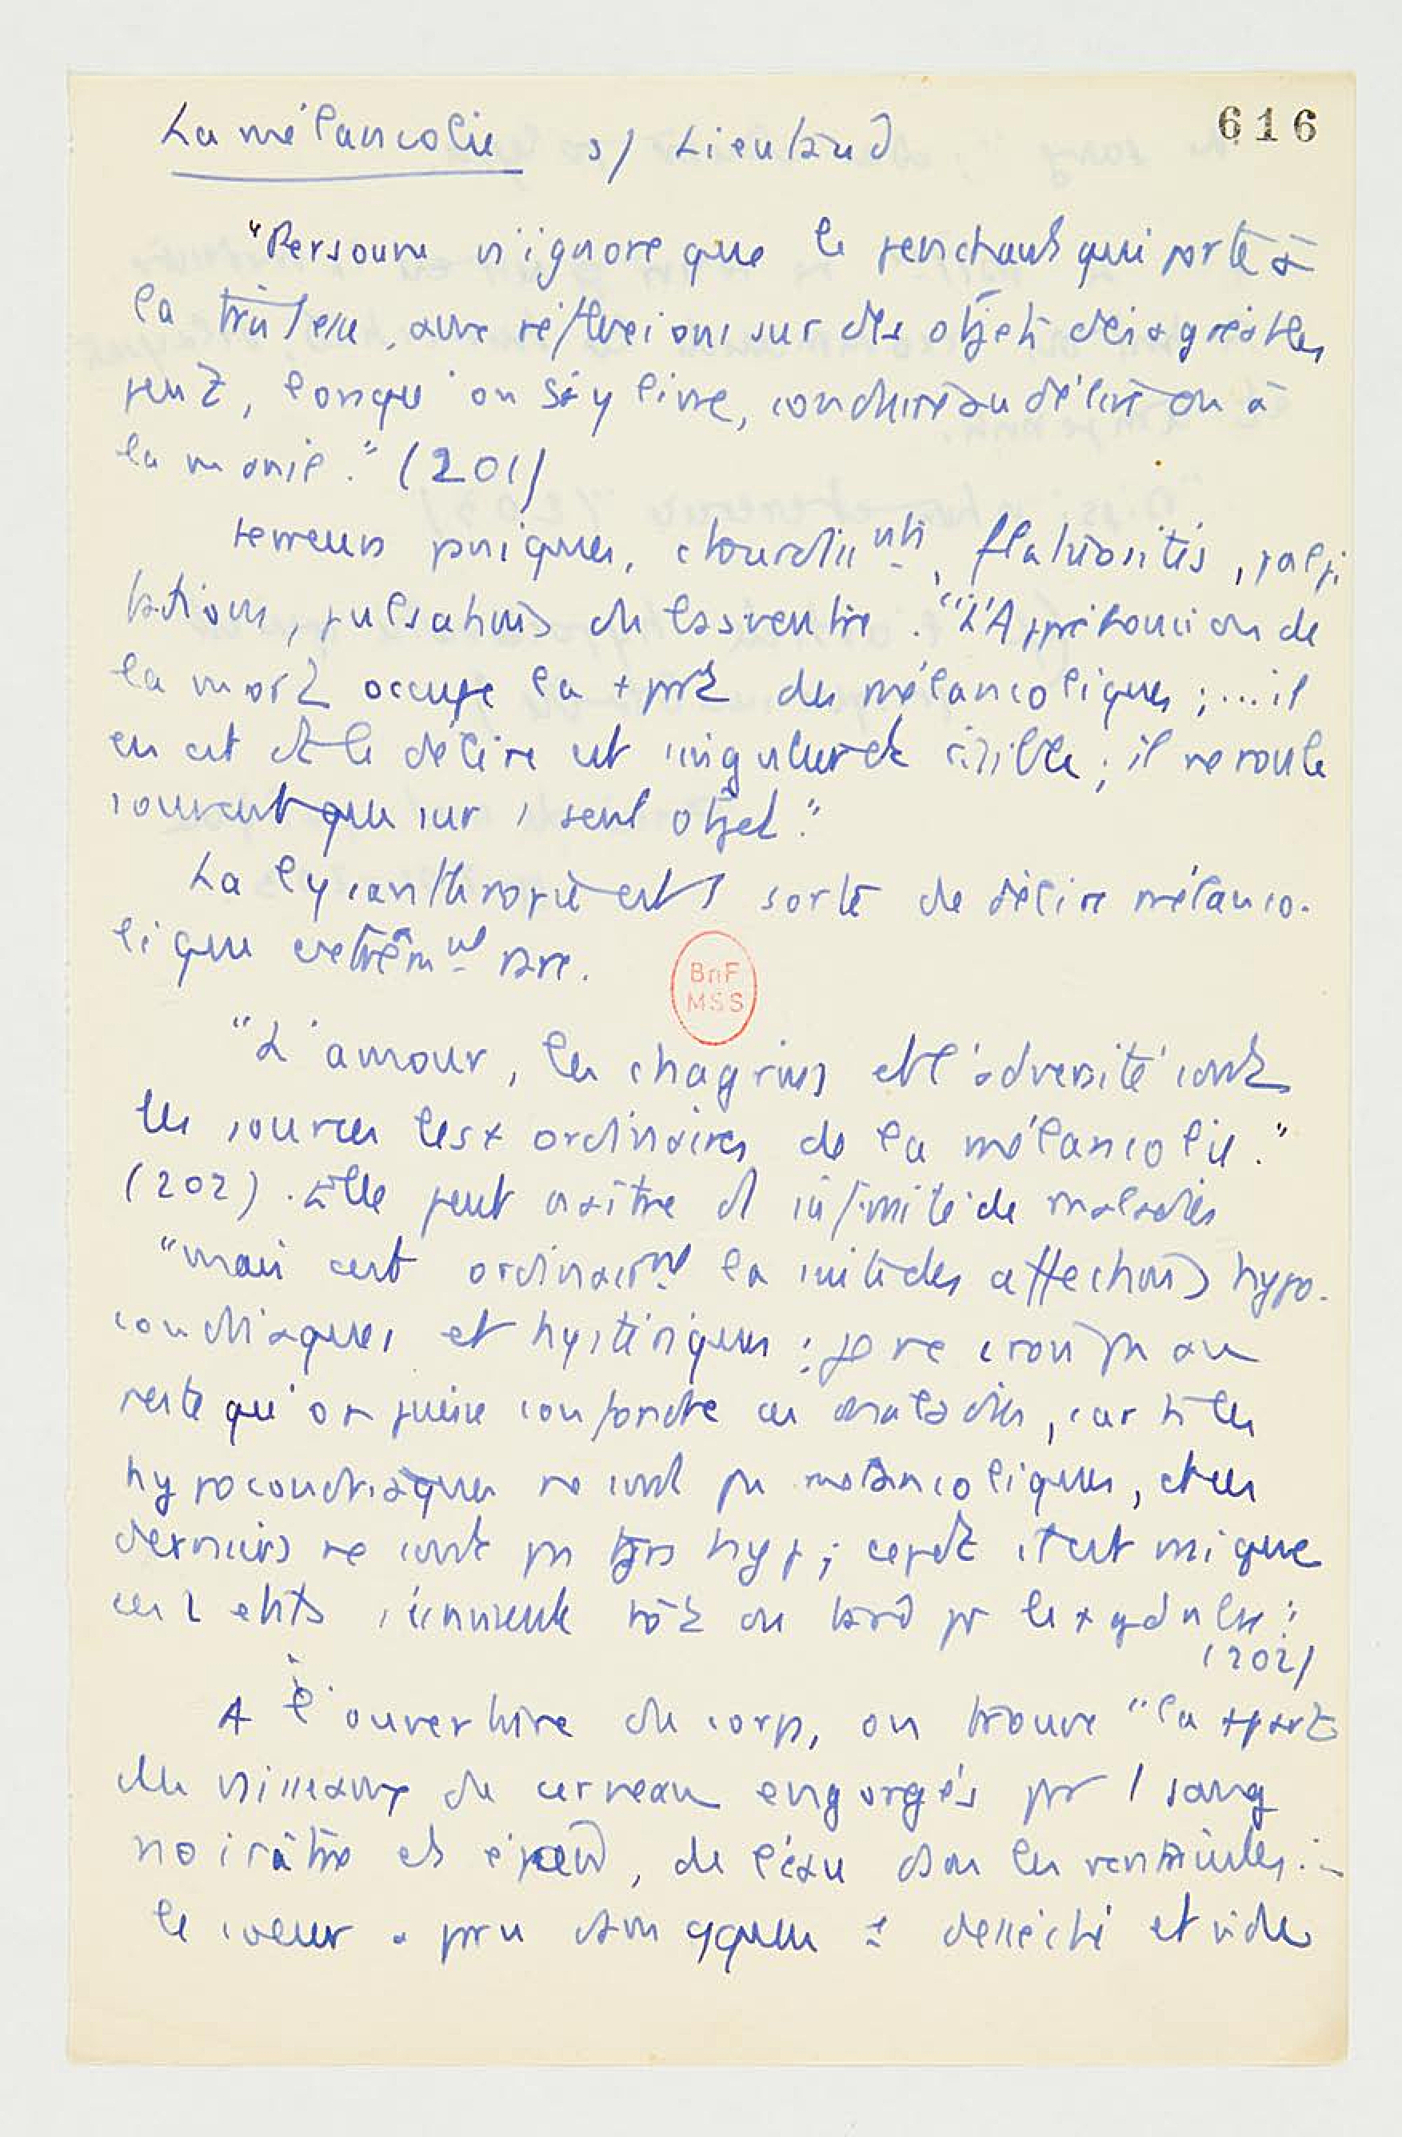 La mélancolie s/ Lieutaud
616
"Personne n'ignore que le penchant qui porte à
la tristesse, aux réflexions sur des objets désagréables
peut, lorsqu'on s'y livre, conduire au délire ou à
la manie." (201)
terreurs paniques, étourdissnts, flatuosités, palpi
tations, pulsations du bas ventre. "L'Appréhension de
la mort occupe la + part des mélancoliques ; ... il
en est dt le délire est singulier et risible ; il ne roule
souvent que sur 1 seul objet."
La lycanthropie est 1 sorte de délire mélanco-
lique extrêmnt rare.
BnF
MSS
"L'amour, les chagrins et l'adversité sont
les sources les + ordinaires de la mélancolie."
(202). Elle peut naître d' infinité de maladies
"mais est ordinairnt la suite des affections hypo-
condriaques et hystériques : je ne crois pas au
reste qu'on puisse confondre ces maladies, car ts les
hypocondriaques ne sont pas mélancoliques, et ces
derniers ne sont pas tjrs hyp ; cepdt il est vrai que
ces 2 états s'unissent tôt ou tard pr le +
(202)
A l'ouverture du corps, on trouve "la + part
des vaisseaux du cerveau engorgés par 1 sang
noirâtre et épais, de l'eau dans les ventricules :
le coeur a paru dans qques desséché et vide